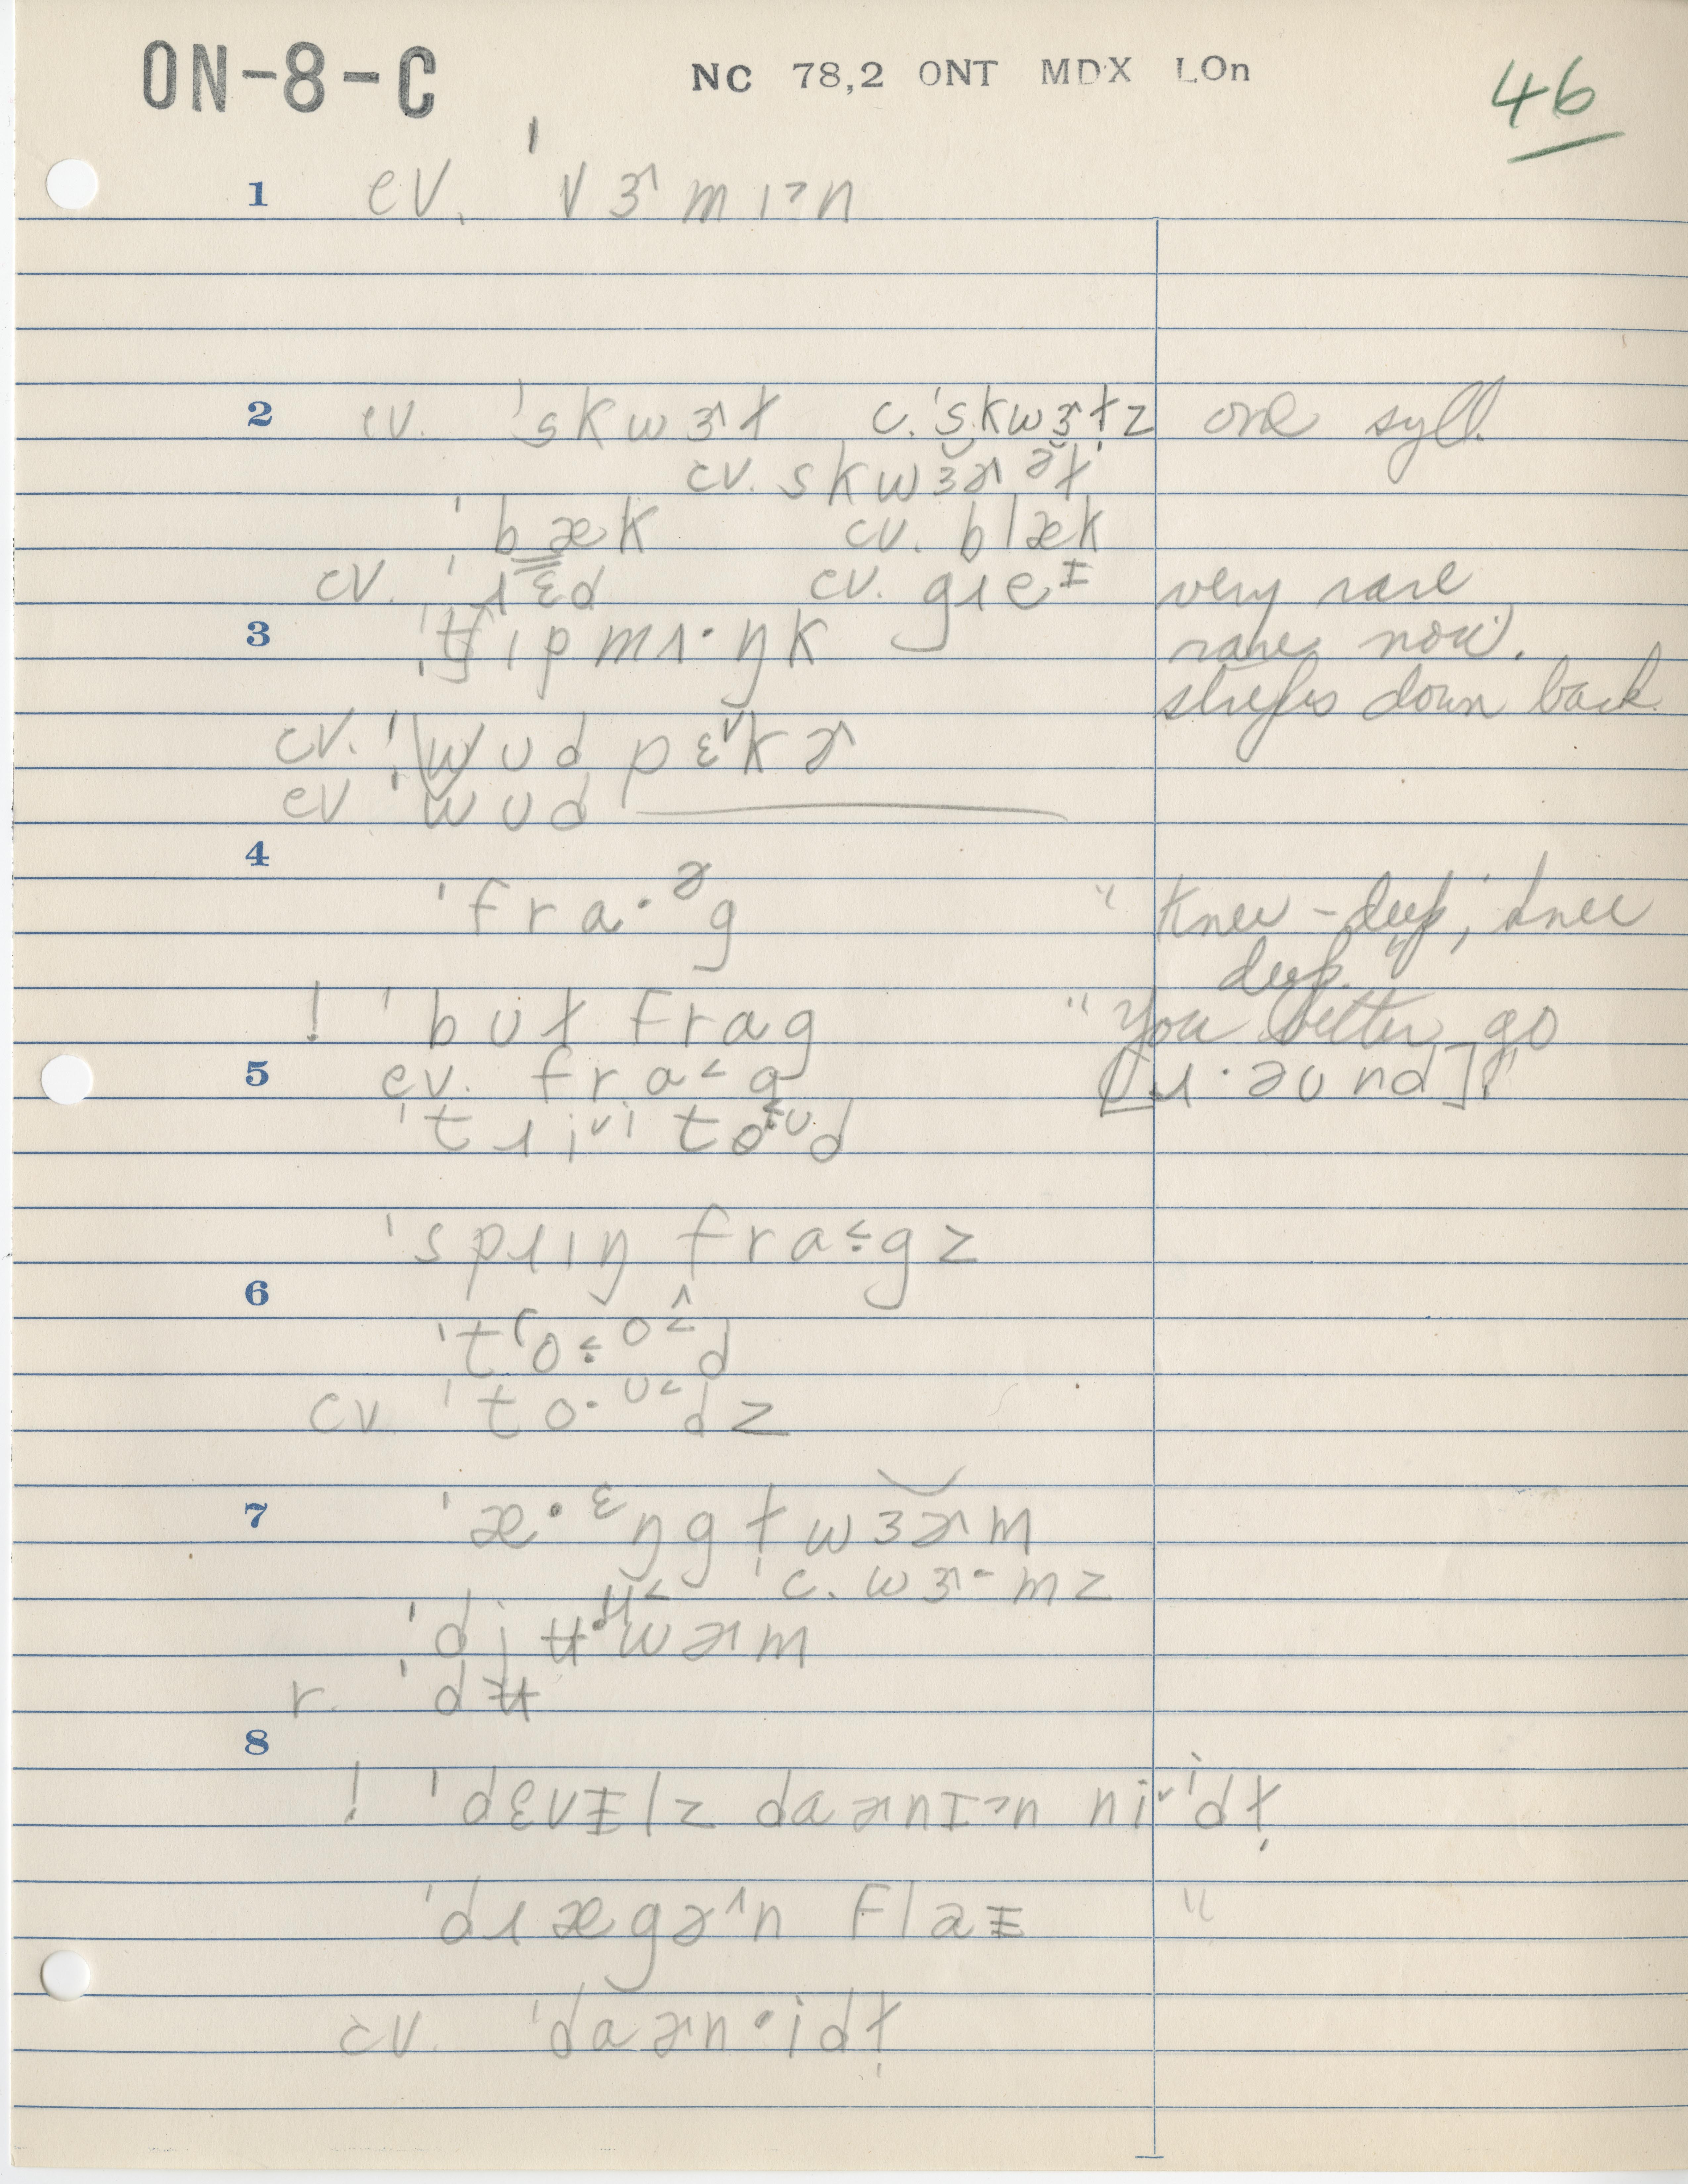 ON-8-C NC 78,2 ONT MDX LOn 46
1 cv. ˈvɝmɪ˃n
2 cv. ˈskwɝɫ c. ˈskwɝɫ̩z one syll.
cv. skwɜ̆ɚə̆ɫ
ˈbæk cv. blæk
cv. ˈɹɛd cv. gɹeᵻ very rare
3 ˈtʃɪpmʌ·ŋk rare now.
stripes down back
cv. ˈwʊdpɛ˅kɚ
cv ˈwʊd
4
ˈfra·ᵊg " Knee-deep, knee
deep."
! ˈbʊɫ frag " You better go
5 cv. fra˂g [ɹ·əʊnd]!"
ˈtɹi˅i toᶷd
ˈspɹɪŋ fra˂·gz
6
ˈtʽo˂·ᵒ˂d
cv. ˈto·ᶷ˂dz
7 ˈæ·ᵋŋgɫ̩wɜɚm
c. wɝ-mz
ˈdjʉ·ᶶ˂wɚm
r. ˈdʉ
8
! ˈdɛvᵻlz daɚnɪ˃n ni˅idɫ̩
ˈdɹægə˄n flaᵻ "
cv. ˈdaɚn·idɫ̩